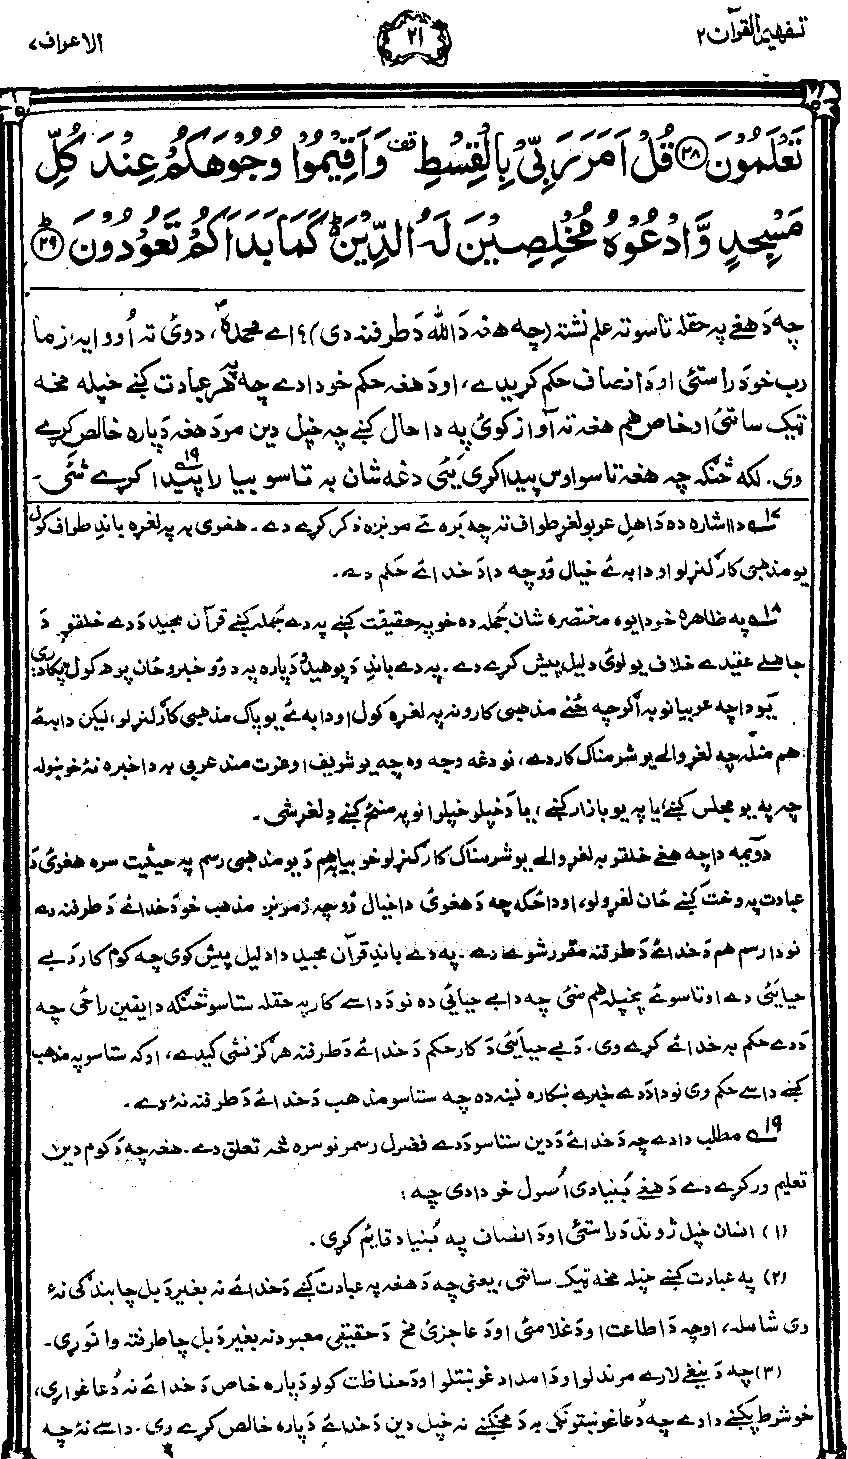 تفهيم القرآن ٢
٢١
الاعراف ٧
تَعْلَمُوْنَ ٢٨ قُلْ اَمَرَ رَبِّیْ بِالْقِسْطِ قف وَاَقِیْمُوْا وُجُوْهَكُمْ عِنْدَ كُلِّ
مَسْجِدٍ وَّادْعُوْهُ مُخْلِصِیْنَ لَهُ الدِّیْنَ ؕ كَمَا بَدَاَكُمْ تَعُوْدُوْنَ ؕ ٢٩
چه دَ هغے په حقله تاسو ته علم نشته (چه هغه دَ الله دَ طرفنه دی)؟ اے محمدهؐ، دوئ ته اُووایه، زما
رب خو دَ راستئ او دَ انصاف حکم کړیدے، او دَ هغه حکم خو دا دے چه په هر عبادت کښے خپله مخه
ټیک ساتئ او خاص هم هغه ته آواز کوئ په دا حال کښے چه خپل دین مو دَ هغه دَ پاره خالص کړے
وی. لکه څنګه چه هغه تاسو اوس پیدا کړی یئ دغه شان به تاسو بیا را پیدا کړے شئ۔ ١٩
١٧ دا اشاره ده دَ اهلِ عربو لغړ طواف ته چه بره ئے مونږه ذکر کړے دے۔ هغوی به په لغړه باندِ طواف کول
یو مذهبی کار ګنړلو او دا به ئے خیال وُو چه دا دَ خدائے حکم دے۔
١٨ په ظاهره خو دا یوه مختصره شان جُمله ده خو په حقیقت کښے په دے جُمله کښے قرآن مجید دَ دے خلقو دَ
جاهلے عقیدے خلاف یو لوئ دلیل پیش کړے دے۔ په دے باندِ دَ پوهیدو دَ پاره په دوؤ خبرو ځان پوهه کول پکار دی:
یو دا چه عربیانو به اګرچه ځنے مذهبی کارونه په لغړه کول او دا به ئے یو پاک مذهبی کار ګنړلو، لیکن دا به ئے
هم منله چه لغړ والے یو شرمناک کار دے، نو دغه وجه وه چه یو شریف او عزت مند عربی به دا خبره نۀ خوښوله
چه په یو مجلس کښے یا په یو بازار کښے، یا دَ خپلو خپلوانو په منځ کښے دِ لغړ شی۔
دوئمه دا چه هغے خلقو به لغړ والے یو شرمناک کار ګنړلو خو بیا هم دَ یو مذهبی رسم په حیثیت سره هغوی دَ
عبادت په وخت کښے ځان لغړولو، او دا ځکه چه دَ هغوی دا خیال وُو چه زمونږ مذهب خو دَ خدائے دَ طرفنه دے
نو دا رسم هم دَ خدائے دَ طرفنه مقرر شوے دے۔ په دے باندِ قرآن مجید دا دلیل پیش کوی چه کوم کار دَ بے
حیائی دے او تاسو ئے پخپله هم منئ چه دا بے حیائی ده نو دَ داسے کار په حقله ستاسو څنګه دا یقین راځی چه
دَ دے حکم به خدائے کړے وی۔ دَ بے حیائی دَ کار حکم دَ خدائے دَ طرفنه هرګز نشی کیدے، او که ستاسو په مذهب
کښے داسے حکم وی نو دا دَ دے خبرے ښکاره نښه ده چه ستاسو مذهب دَ خدائے دَ طرفنه نۀ دے۔
١٩ مطلب دا دے چه دَ خدائے دَ دین ستاسو دَ دے فضول رسمونو سره څه تعلق دے۔ هغه چه دَ کوم دین
تعلیم ورکړے دے دَ هغے بُنیادی اُصول خو دا دی چه:
(١) انسان خپل ژوند دَ راستئ او دَ انصاف په بُنیاد قائم کړی۔
(٢) په عبادت کښے خپله مخه ټیک ساتی، یعنی چه دَ هغه په عبادت کښے دَ خدائے نه بغیر دَ بل چا بندګی نۀ
وی شامله، او چه دَ اطاعت او دَ غلامئ او دَ عاجزئ مخ دَ حقیقی معبود نه بغیر دَ بل چا طرفته وا نۀ وړی۔
(٣) چه دَ نیغے لارے موندلو او دَ امداد غوښتلو او دَ حفاظت کولو دَ پاره خاص دَ خدائے نه دُعا غواړی،
خو شرط پکښے دا دے چه دُعا غوښتونکی به دَ مخکښے نه خپل دین دَ خدائے دَ پاره خالص کړے وی۔ داسے نۀ چه